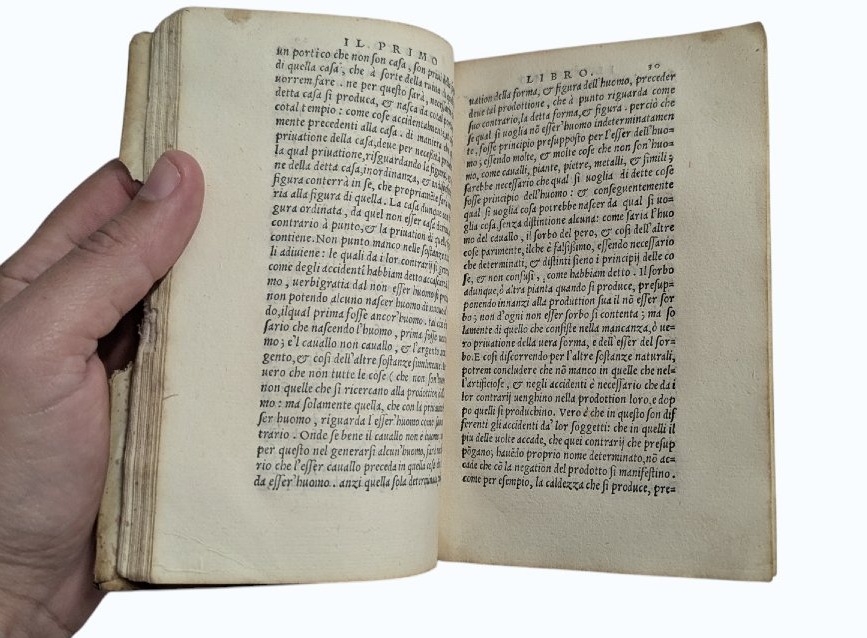 IL PRIMO
un portico che non son casa, son
di quella casa, che à sorte della
uorrem fare. ne per questo sarà,
detta casa si produca, & nasca da
cotal tempio: come cose accidentalmente,
mente precedenti alla casa. di maniera
priuatione della casa, deue per necessità
la qual priuatione, risguardando la figura,
ne della detta casa, inordinanza, &
figura conterrà in se, che propriamente
ria alla figura di quella. La casa dunque
gura ordinata, da quel non esser casa
contrario à punto, & la priuation di
contiene. Non punto manco nelle sostantie
li adiuiene: le quali da i lor contrarij
come degli accidenti habbiam detto
mo, uerbigratia dal non esser huomo
non potendo alcuno nascer huomo di nuouo
do, ilqual prima fosse ancor'huomo.
sario che nascendo l'huomo, prima fosse
mo; e'l cauallo non cauallo, & l'argento
gento, & cosi dell'altre sostanze
uero che non tutte le cose (che non son
rion quelle che si ricercano alla prodottion
mo: ma solamente quella, che con la
ser huomo, riguarda l'esser'huomo come
trario. Onde se bene il cauallo non è huomo
per questo nel generarsi alcun'huomo,
rio che l'esser cauallo preceda in quella
da esser'huomo. anzi quella sola
LIBRO. 30
uation della forma, & figura dell'huomo, preceder
deue tal prodottione, che à punto riguarda come
suo contrario, la detta forma, & figura. perciò che
se qual si uoglia nō esser'huomo indeterminatamen
te, fosse principio presupposto per l'esser dell'huo=
mo; essendo molte, & molte cose che non son'huo=
mo, come caualli, piante, pietre, metalli, & simili;
sarebbe necessario che qual si uoglia di dette cose
fosse principio dell'huomo: & conseguentemente
qual si uoglia cosa potrebbe nascer da qual si uo=
glia cosa, senza distintione alcuna: come saria l'huo
mo del cauallo, il sorbo del pero, & cosi dell'altre
cose parimente, ilche è falsissimo, essendo necessario
che determinati, & distinti sieno i principij delle co
se, & non confusi, come habbiam detto. Il sorbo
adunque, ò altra pianta quando si produce, presup=
ponendo innanzi alla prodottion sua il nō esser sor
bo; non d'ogni non esser sorbo si contenta; ma so
lamente di quello che consiste nella mancanza, ò ue=
ro priuatione della uera forma, e dell'esser del sor=
bo. E cosi discorrendo per l'altre sostanze naturali,
potrem concludere che nō manco in quelle che nel=
l'artificiose, & negli accidenti è necessario che da i
lor contrarij uenghino nella prodottion loro, e dop
po quelli si produchino. Vero è che in questo son dif
ferenti gli accidenti da' lor soggetti: che in quelli il
più delle uolte accade, che quei contrarij che presup
pōgano; hauēdo proprio nome determinato, nō ac=
cade che cō la negation del prodotto si manifestino.
come per esempio, la caldezza che si produce, pre=